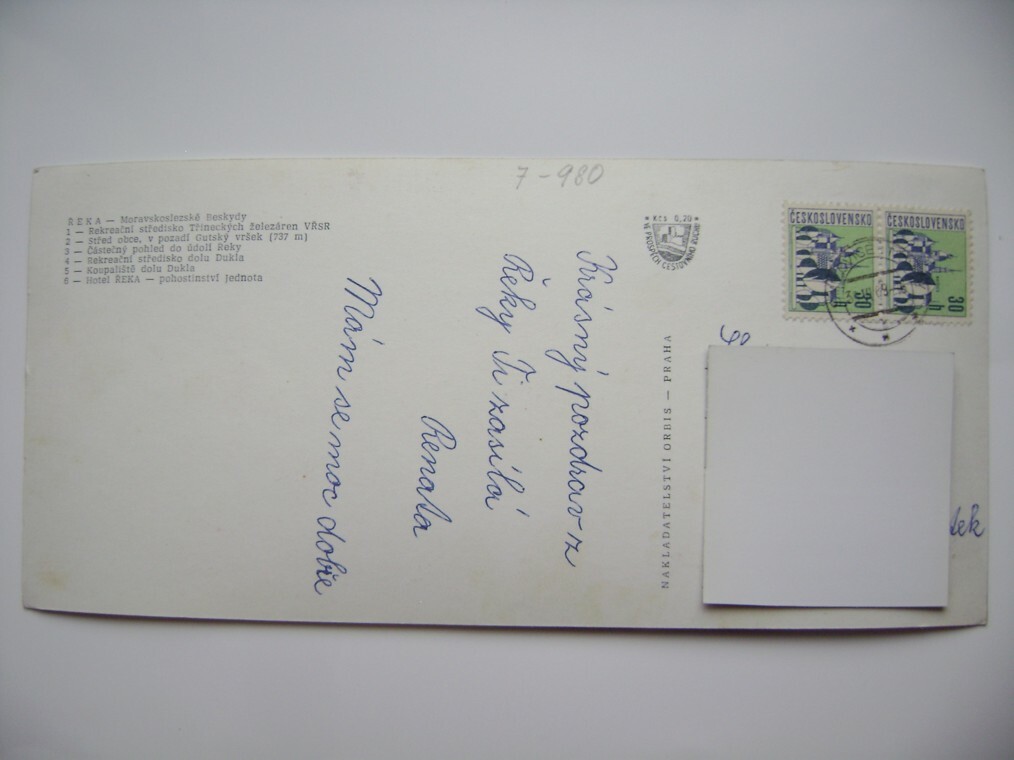 7-980
ŘEKA — Moravskoslezské Beskydy
1 — Rekreační středisko Třineckých železáren VŘSR
2 — Střed obce, v pozadí Gutský vršek (737 m)
3 — Částečný pohled do údolí Řeky
4 — Rekreační středisko dolu Dukla
5 — Koupaliště dolu Dukla
6 — Hotel ŘEKA — pohostinství Jednota
Krásný pozdrav z
Řeky Ti zasílá
Renata
Mám se moc dobře
NAKLADATELSTVÍ ORBIS — PRAHA
* Kčs 0,20 *
VE PROSPĚCH CESTOVNÍHO RUCHU
ČESKOSLOVENSKO
30 h
ČESKOSLOVENSKO
30 h